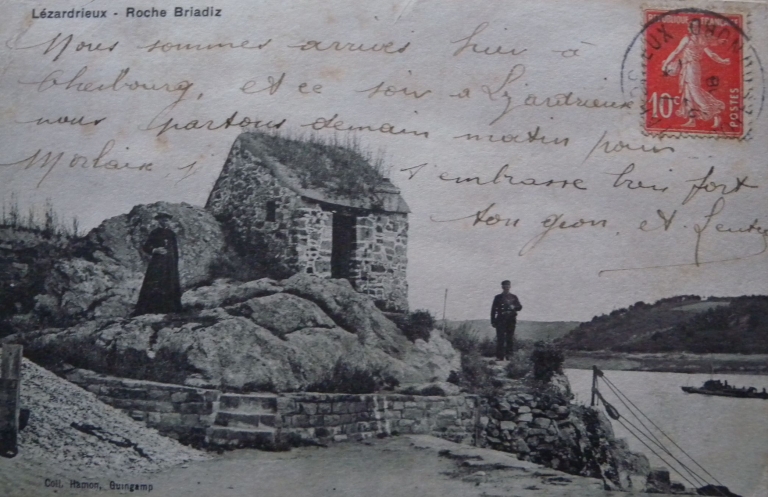 Lézardrieux - Roche Briadiz
Nous sommes arrivés hier à
Cherbourg, et ce soir a Lézardrieux
nous partons demain matin pour
Morlaix, j
t'embrasse bien fort
ton et
10c
POSTES
Coll. Hamon, Guingamp